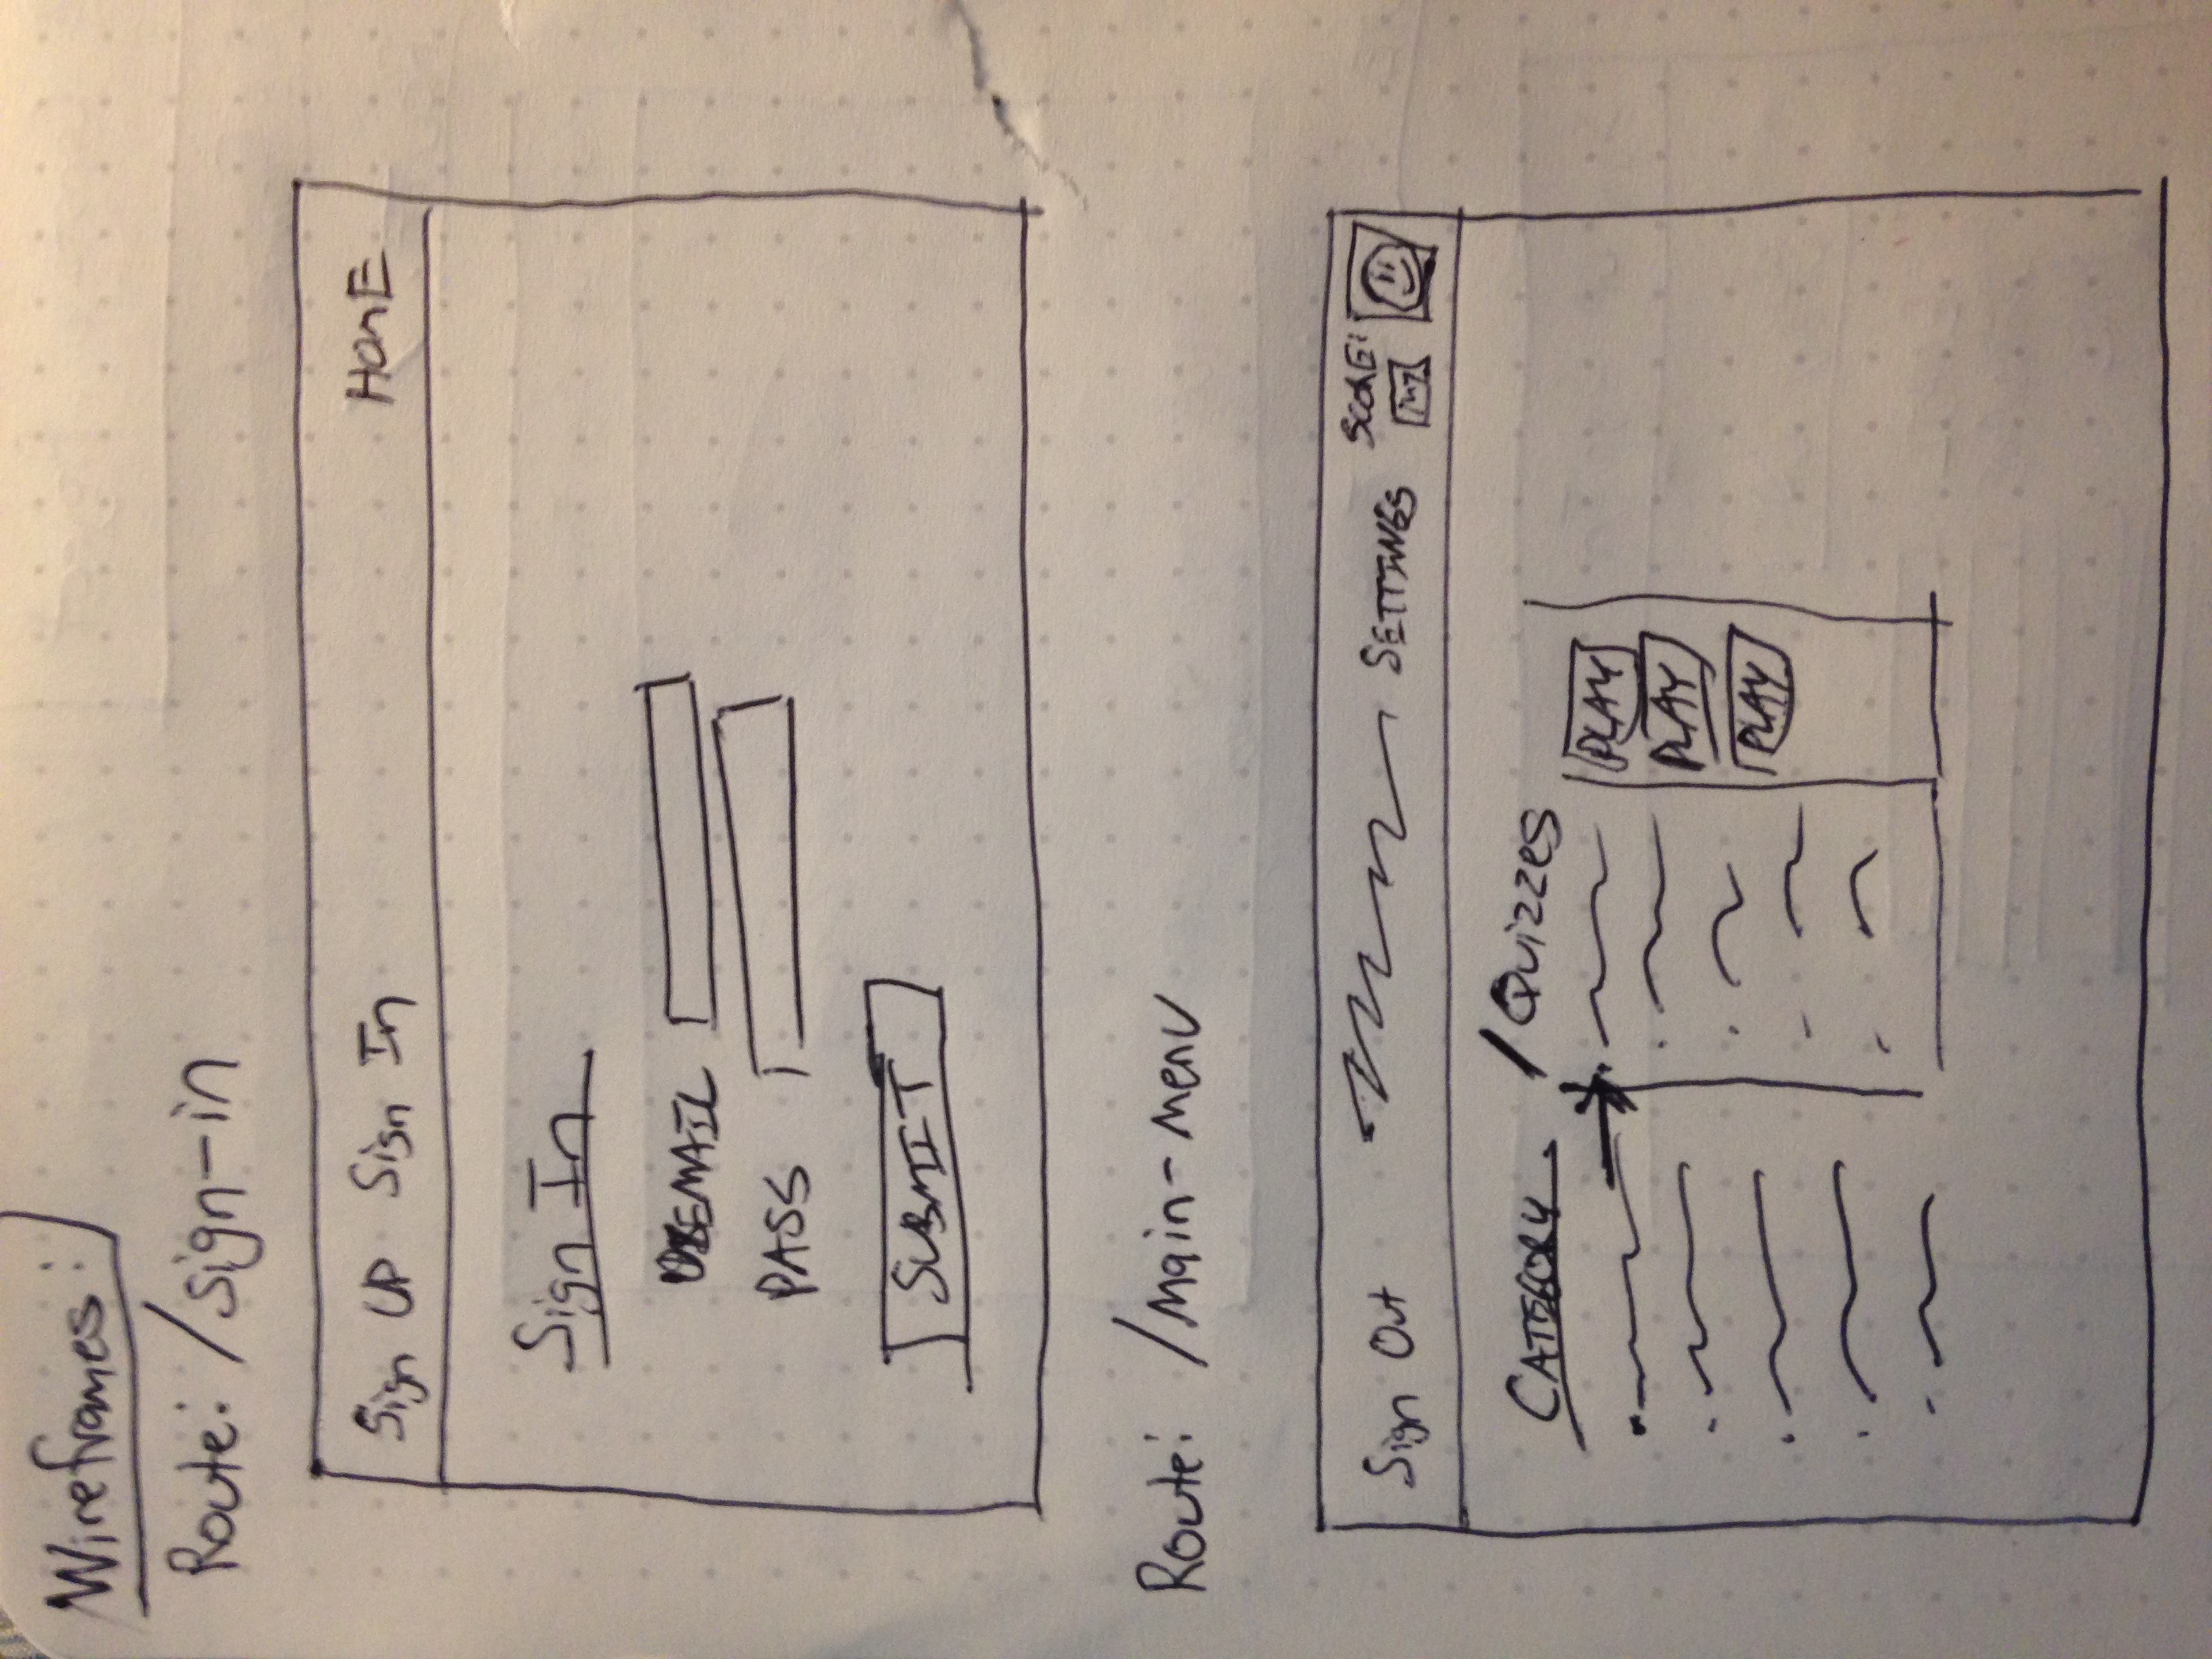 Wireframes:
Route: /sign-in
Sign UP Sign In HOME
Sign In
EMAIL
PASS
SUBMIT
Route: /Main-Menu
Sign Out SETTINGS SCORE:
CATEGORY / Quizzes
PLAY
PLAY
PLAY